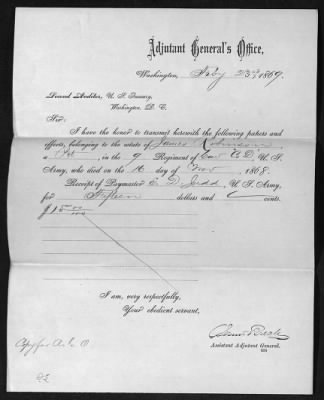 Adjutant General's Office,
Washington, Feby 23rd, 1869.
Second Auditor, U. S. Treasury,
Washington, D. C.
Sir:
I have the honor to transmit herewith the following papers and
effects, belonging to the estate of James Robinson,
a Pvt in the 9 Regiment of Cav U. S.
Army, who died on the 16 day of Nov, 1868.
Receipt of Paymaster E. D. Judd, U. S. Army,
for Fifteen dollars and cents.
$15 00/100
I am, very respectfully,
Your obedient servant,
Assistant Adjutant General.